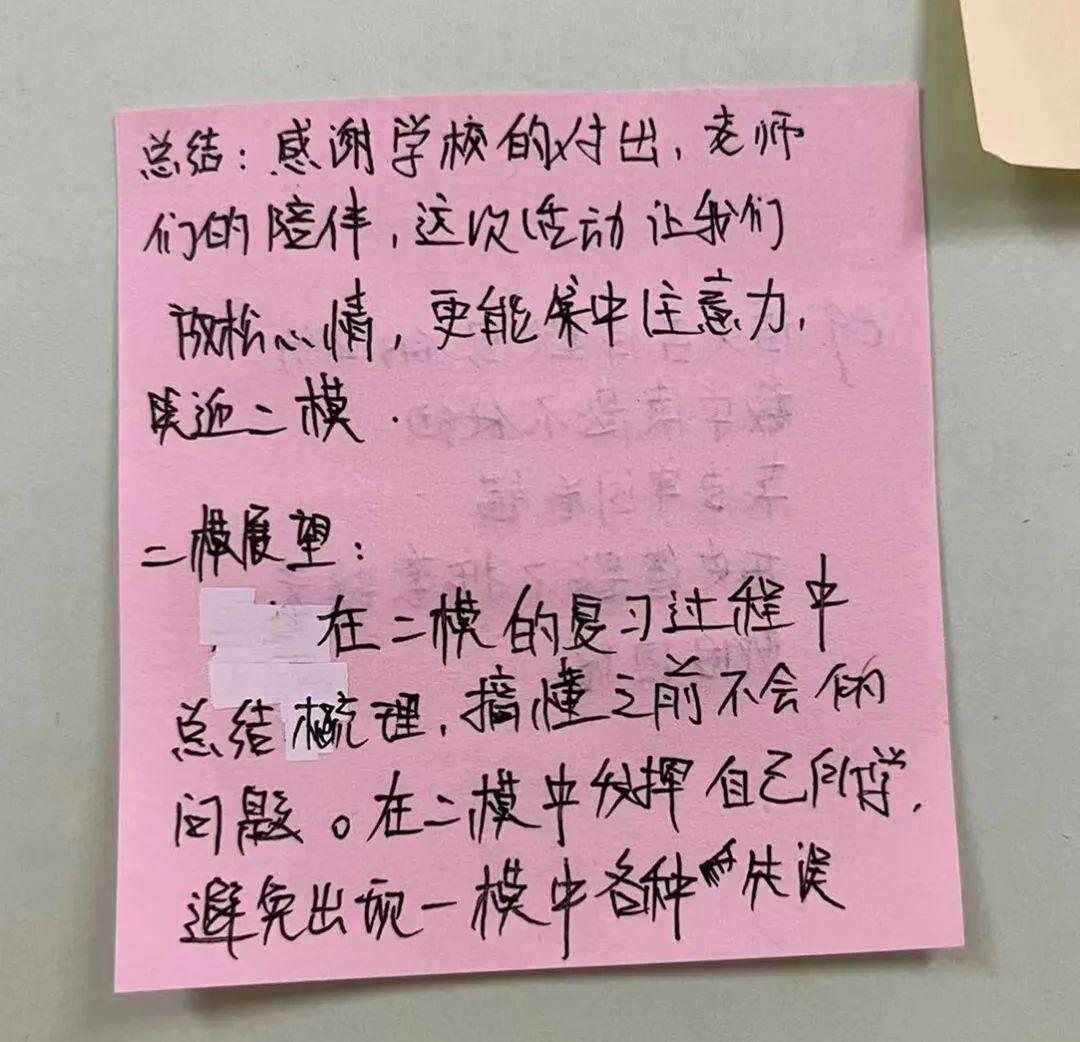 总结：感谢学校的付出，老师
们的陪伴，这次活动让我们
放松心情，更能集中注意力，
迎二模．
二模展望：
在二模的复习过程中
总结梳理，搞懂之前不会的
问题。在二模中发挥自己所学，
避免出现一模中各种失误